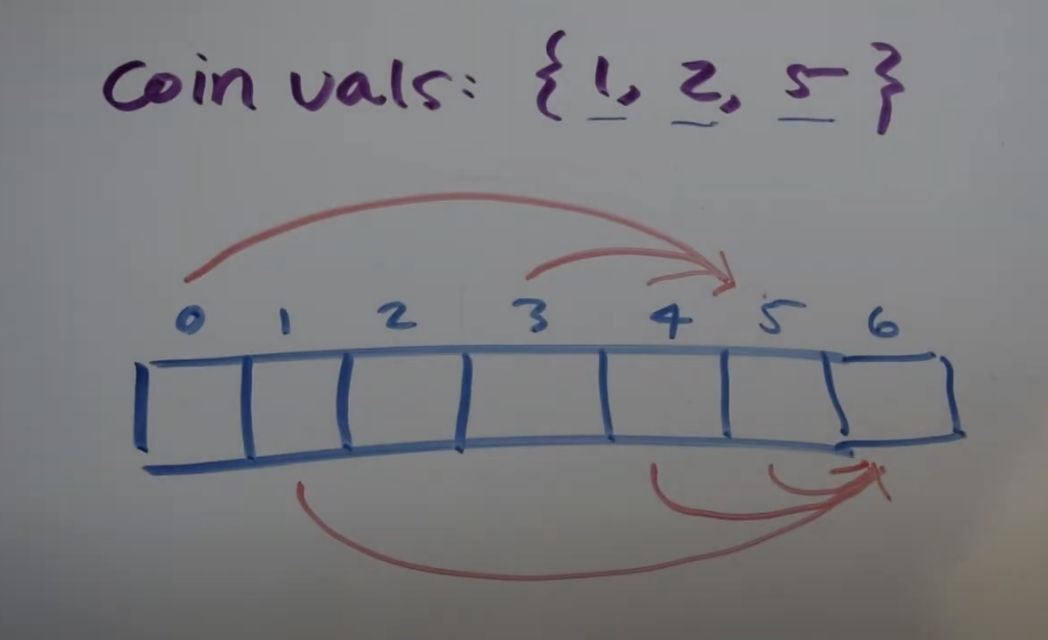 coin vals: {1, 2, 5}
0 1 2 3 4 5 6